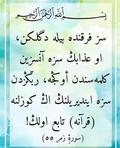 بسم الله الرحمن الرحيم
سز فرقنده بيله دگلكن،
او عذابڭ سزه آنسزين
كلمه‌سندن أوڭجه، ربڭزدن
سزه اينديريلنڭ اڭ كوزلنه
(قرآنه) تابع اولڭ!
سورهٔ زمر ٥٥